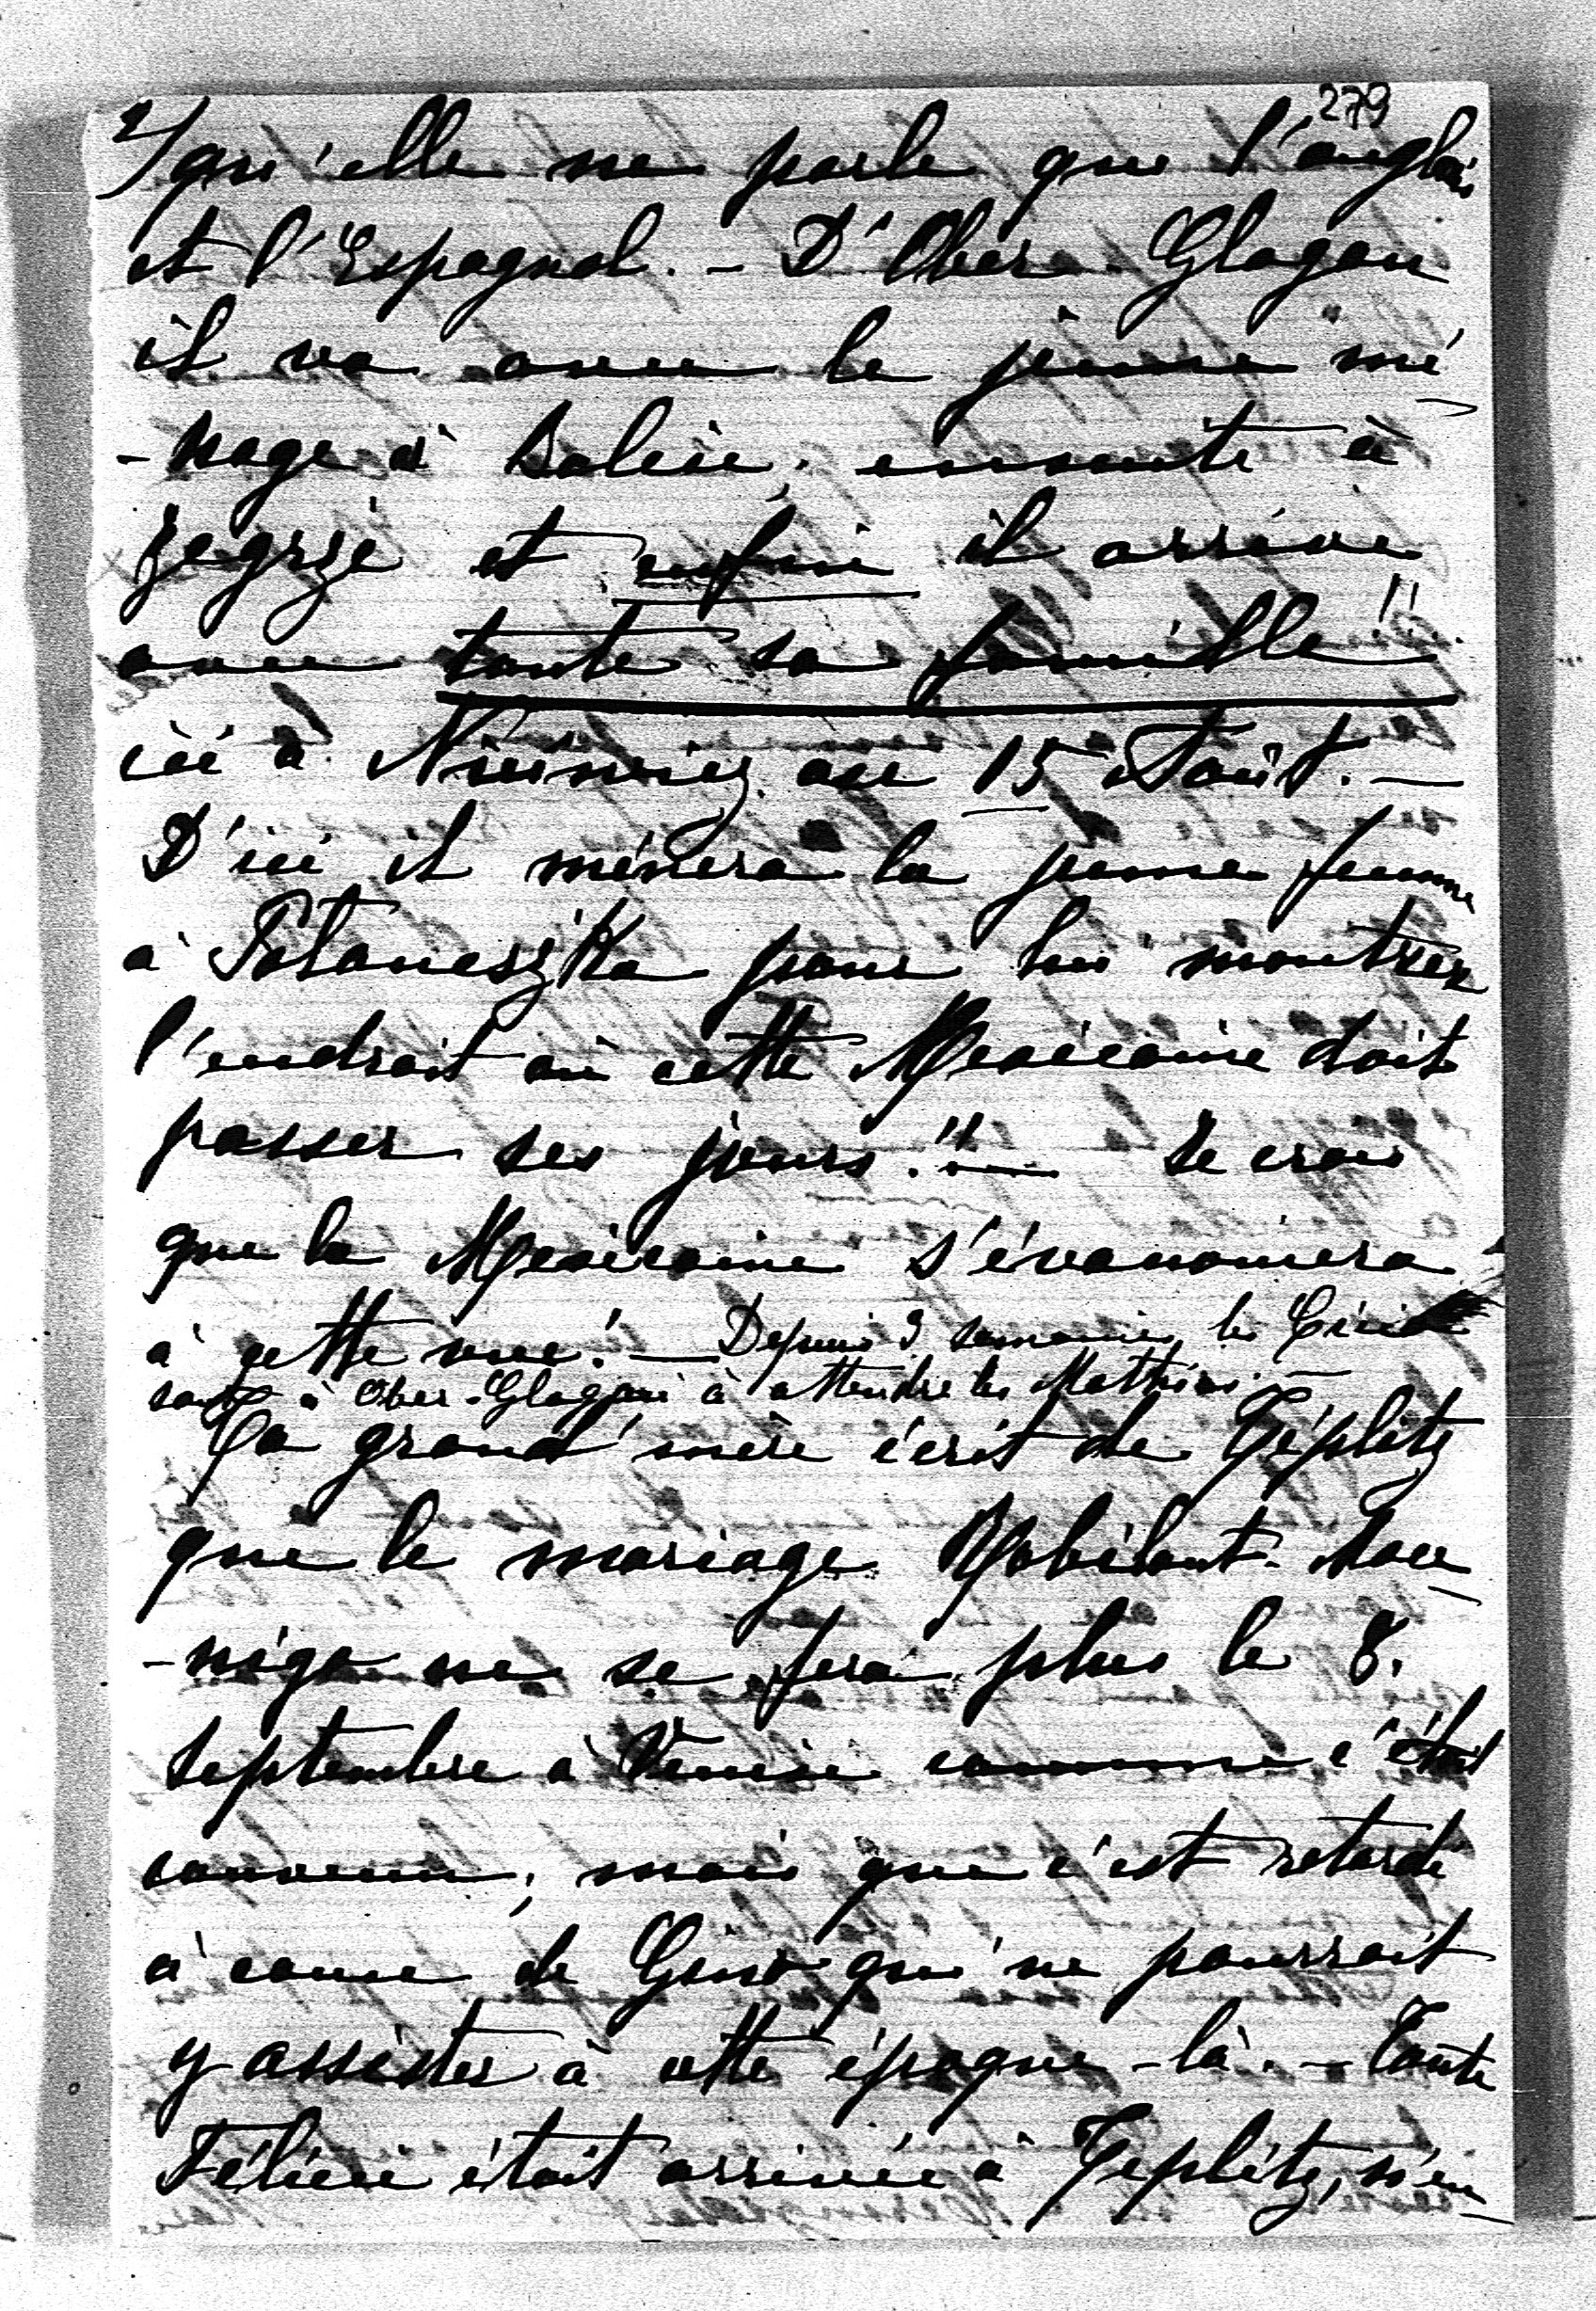 279
2/ qu'elle ne parle que l'anglais
et l'Espagnol. – D'Ober-Glogau
il va avec le jeune mé
-nage à Balice, ensuite à
Zegrzé et enfin il arrive
avec toute sa famille!!
ici à Nieśwież au 15 Août. –
D'ici il ménera la jeune femme
à Poloneszka pour lui montrer
l'endroit où cette Mexicaine doit
passer ses jours!! – Je crois
que la Mexicaine s'évanouiera
à cette vue! – Depuis 3 semaines les
sont à Ober-Glogau à attendre les Mathias. –
La grand'mère écrit de Téplitz
que le mariage Robilant-Moce
-nigo ne se fera plus le 8.
Septembre à Venise comme c'était
convenu, mais que c'est retardé
à cause de qui ne pourrait
y assister à cette époque-là. – Tante
Félicie était arrivée à Teplitz, s'en